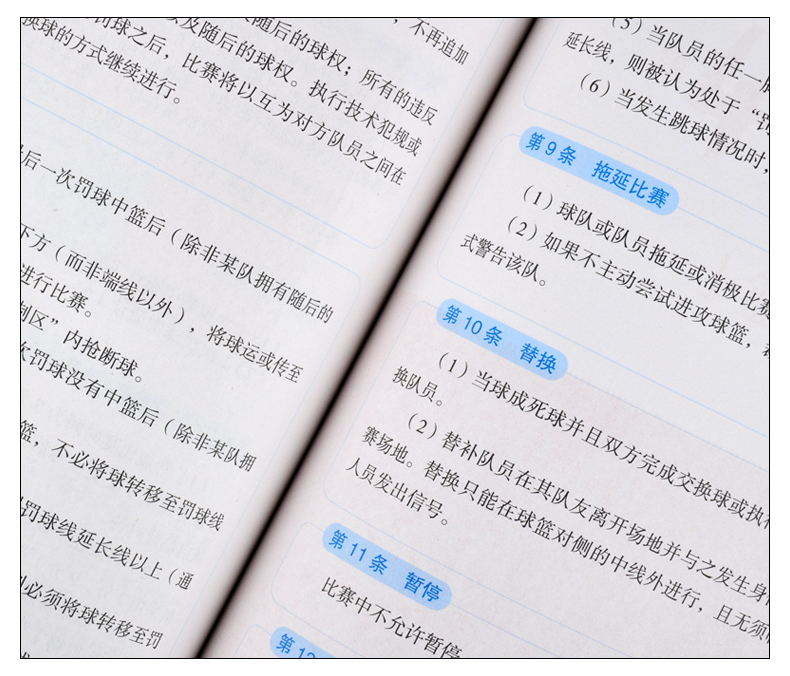 ，不再追加
随后的球权；所有的违反
罚球之后，以及随后的球权。执行技术犯规或
换球的方式继续进行。比赛将以互为对方队员之间在
后一次罚球中篮后（除非某队拥有随后的
下方（而非端线以外），将球运或传至
进行比赛。
制区”内抢断球。
次罚球没有中篮后（除非某队拥
篮，不必将球转移至罚球线
罚球线延长线以上（通
必须将球转移至罚
（5）当队员的任一脚
延长线，则被认为处于“罚
（6）当发生跳球情况时，
第9条 拖延比赛
（1）球队或队员拖延或消极比赛
（2）如果不主动尝试进攻球篮，
式警告该队。
第10条 替换
（1）当球成死球并且双方完成交换球或执
换队员。
（2）替补队员在其队友离开场地并与之发生身
赛场地。替换只能在球篮对侧的中线外进行，且无须
人员发出信号。
第11条 暂停
比赛中不允许暂停
第12